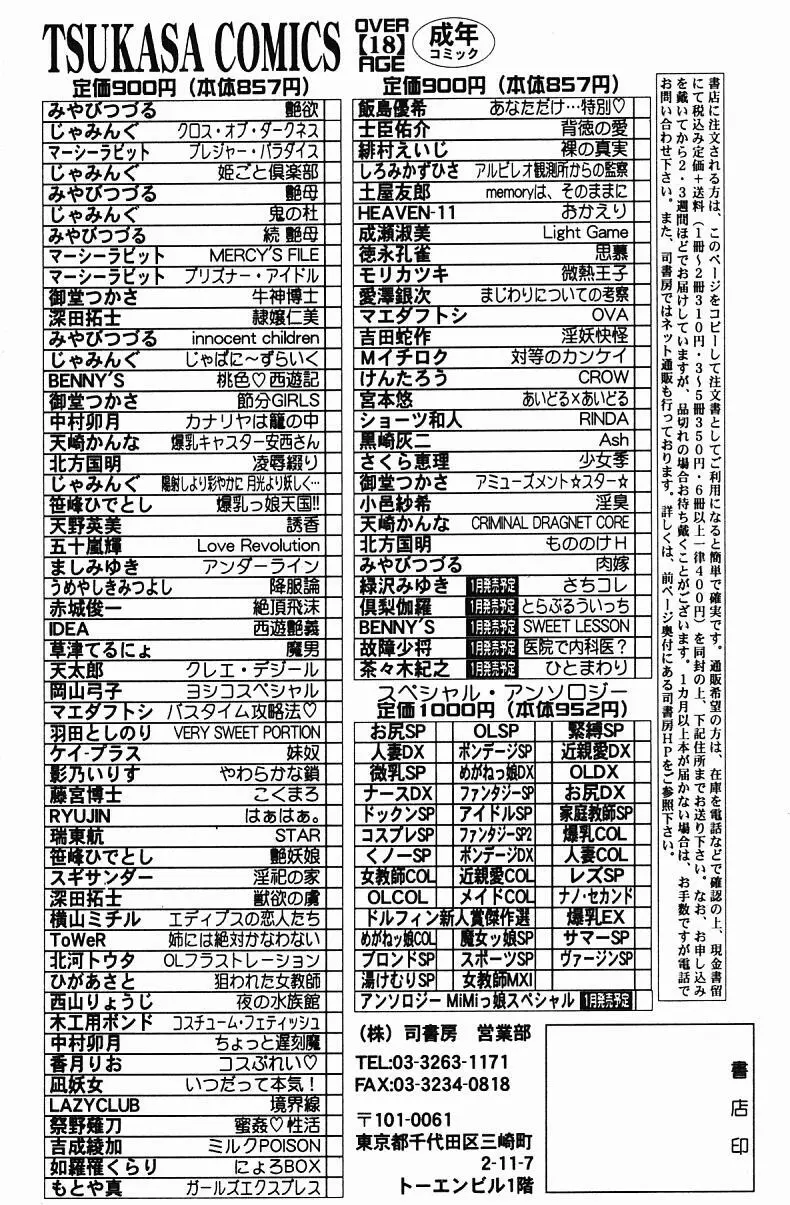 TSUKASA COMICS OVER【18】AGE 成年コミック
定価900円（本体857円）
みやびつづる 艶欲
じゃみんぐ クロス・オブ・ダークネス
マーシーラビット プレジャー・パラダイス
じゃみんぐ 姫ごと倶楽部
みやびつづる 艶母
じゃみんぐ 鬼の杜
みやびつづる 続 艶母
マーシーラビット MERCY'S FILE
マーシーラビット プリズナー・アイドル
御堂つかさ 牛神博士
深田拓士 隷嬢仁美
みやびつづる innocent children
じゃみんぐ じゃぱに〜ずらいく
BENNY'S 桃色♡西遊記
御堂つかさ 節分GIRLS
中村卯月 カナリヤは籠の中
天崎かんな 爆乳キャスター安西さん
北方国明 凌辱綴り
じゃみんぐ 陽射しより彩やかに 月光より妖しく…
笹峰ひでとし 爆乳っ娘天国!!
天野英美 誘香
五十嵐輝 Love Revolution
ましみゆき アンダーライン
うめやしきみつよし 降服論
赤城俊一 絶頂飛沫
IDEA 西遊艶義
草津てるにょ 魔男
天太郎 クレエ・デジール
岡山弓子 ヨシコスペシャル
マエダフトシ バスタイム攻略法♡
羽田としのり VERY SWEET PORTION
ケイ-プラス 妹奴
影乃いりす やわらかな鎖
藤宮博士 こくまろ
RYUJIN はぁはぁ。
瑞東航 STAR
笹峰ひでとし 艶妖娘
スギサンダー 淫祀の家
深田拓士 獣欲の虜
横山ミチル エディプスの恋人たち
ToWeR 姉には絶対かなわない
北河トウタ OLフラストレーション
ひがあさと 狙われた女教師
西山りょうじ 夜の水族館
木工用ボンド コスチューム・フェティッシュ
中村卯月 ちょっと遅刻魔
香月りお コスぷれい♡
凪妖女 いつだって本気！
LAZYCLUB 境界線
祭野薙刀 蜜姦♡性活
吉成綾加 ミルクPOISON
如羅罹くらり にょろBOX
もとや真 ガールズエクスプレス
定価900円（本体857円）
飯島優希 あなただけ…特別♡
士臣佑介 背徳の愛
緋村えいじ 裸の真実
しろみかずひさ アルビレオ観測所からの監察
土屋友郎 memoryは、そのままに
HEAVEN-11 おかえり
成瀬淑美 Light Game
徳永孔雀 思慕
モリカツキ 微熱王子
愛澤銀次 まじわりについての考察
マエダフトシ OVA
吉田蛇作 淫妖快怪
Mイチロク 対等のカンケイ
けんたろう CROW
宮本悠 あいどる×あいどる
ショーツ和人 RINDA
黒崎灰二 Ash
さくら恵理 少女季
御堂つかさ アミューズメント☆スター☆
小邑紗希 淫臭
天崎かんな CRIMINAL DRAGNET CORE
北方国明 もののけH
みやびつづる 肉嫁
緑沢みゆき 1月発売予定 さちコレ
倶梨伽羅 1月発売予定 とらぶるういっち
BENNY'S 1月発売予定 SWEET LESSON
故障少将 1月発売予定 医院で内科医？
茶々木紀之 1月発売予定 ひとまわり
スペシャル・アンソロジー
定価1000円（本体952円）
お尻SP OLSP 緊縛SP
人妻DX ボンデージSP 近親愛DX
微乳SP めがねっ娘DX OLDX
ナースDX ファンタジーSP お尻DX
ドックンSP アイドルSP 家庭教師SP
コスプレSP ファンタジーSP2 爆乳COL
くノーSP ボンデージDX 人妻COL
女教師COL 近親愛COL レズSP
OLCOL メイドCOL ナノ・セカンド
ドルフィン新人賞傑作選 爆乳EX
めがねッ娘COL 魔女ッ娘SP サマーSP
ブロンドSP スポーツSP ヴァージンSP
湯けむりSP 女教師MXI
アンソロジー MiMiっ娘スペシャル 1月発売予定
（株）司書房 営業部
TEL:03-3263-1171
FAX:03-3234-0818
〒101-0061
東京都千代田区三崎町
2-11-7
トーエンビル1階
書店印
書店に注文される方は、このページをコピーして注文書としてご利用になると簡単で確実です。通販希望の方は、在庫を電話などで確認の上、現金書留
にて税込み定価＋送料（1冊〜2冊310円・3〜5冊350円・6冊以上一律400円）を同封の上、下記住所までお送り下さい。なお、お申し込み
を戴いてから2・3週間ほどでお届けしていますが、品切れの場合お待ち戴くことがございます。1カ月以上本が届かない場合は、お手数ですが電話で
お問い合わせ下さい。また、司書房ではネット通販も行っております。詳しくは、前ページ奥付にある司書房HPをご参照下さい。